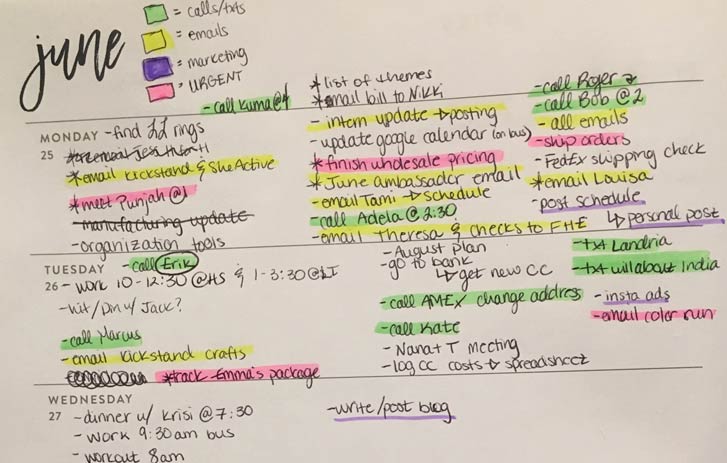 june
= calls/txts
= emails
= marketing
= URGENT
- call Kuma @
MONDAY
25
- find rings
*email Kickstand & SheActive
*meet Punjah @1
- manufacturing update
- organization tools
*list of themes
*email bill to Nikki
- intern update → posting
- update google calendar (on bus)
*finish wholesale pricing
*June ambassador email
- email Tami → schedule
- call Adela @ 2:30
- email Theresa & checks to FHE
- call Roger
- call Bob @ 2
- all emails
- ship orders
- FedEx shipping check
*email Louisa
- post schedule
↳ personal post
TUESDAY
26
- call Erik
- work 10-12:30 @HS & 1-3:30 @LI
- hit/Dm w/ Jack?
- call Marcus
- email kickstand crafts
*track Emma's package
- August plan
- go to bank
↳ get new CC
- call AMEX change address
- call Kate
- Nana + T meeting
- log CC costs → spreadsheet
- txt Landria
- txt will about India
- insta ads
- email color run
WEDNESDAY
27
- dinner w/ Krisi @ 7:30
- work 9:30am bus
- workout 8am
- write/post blog